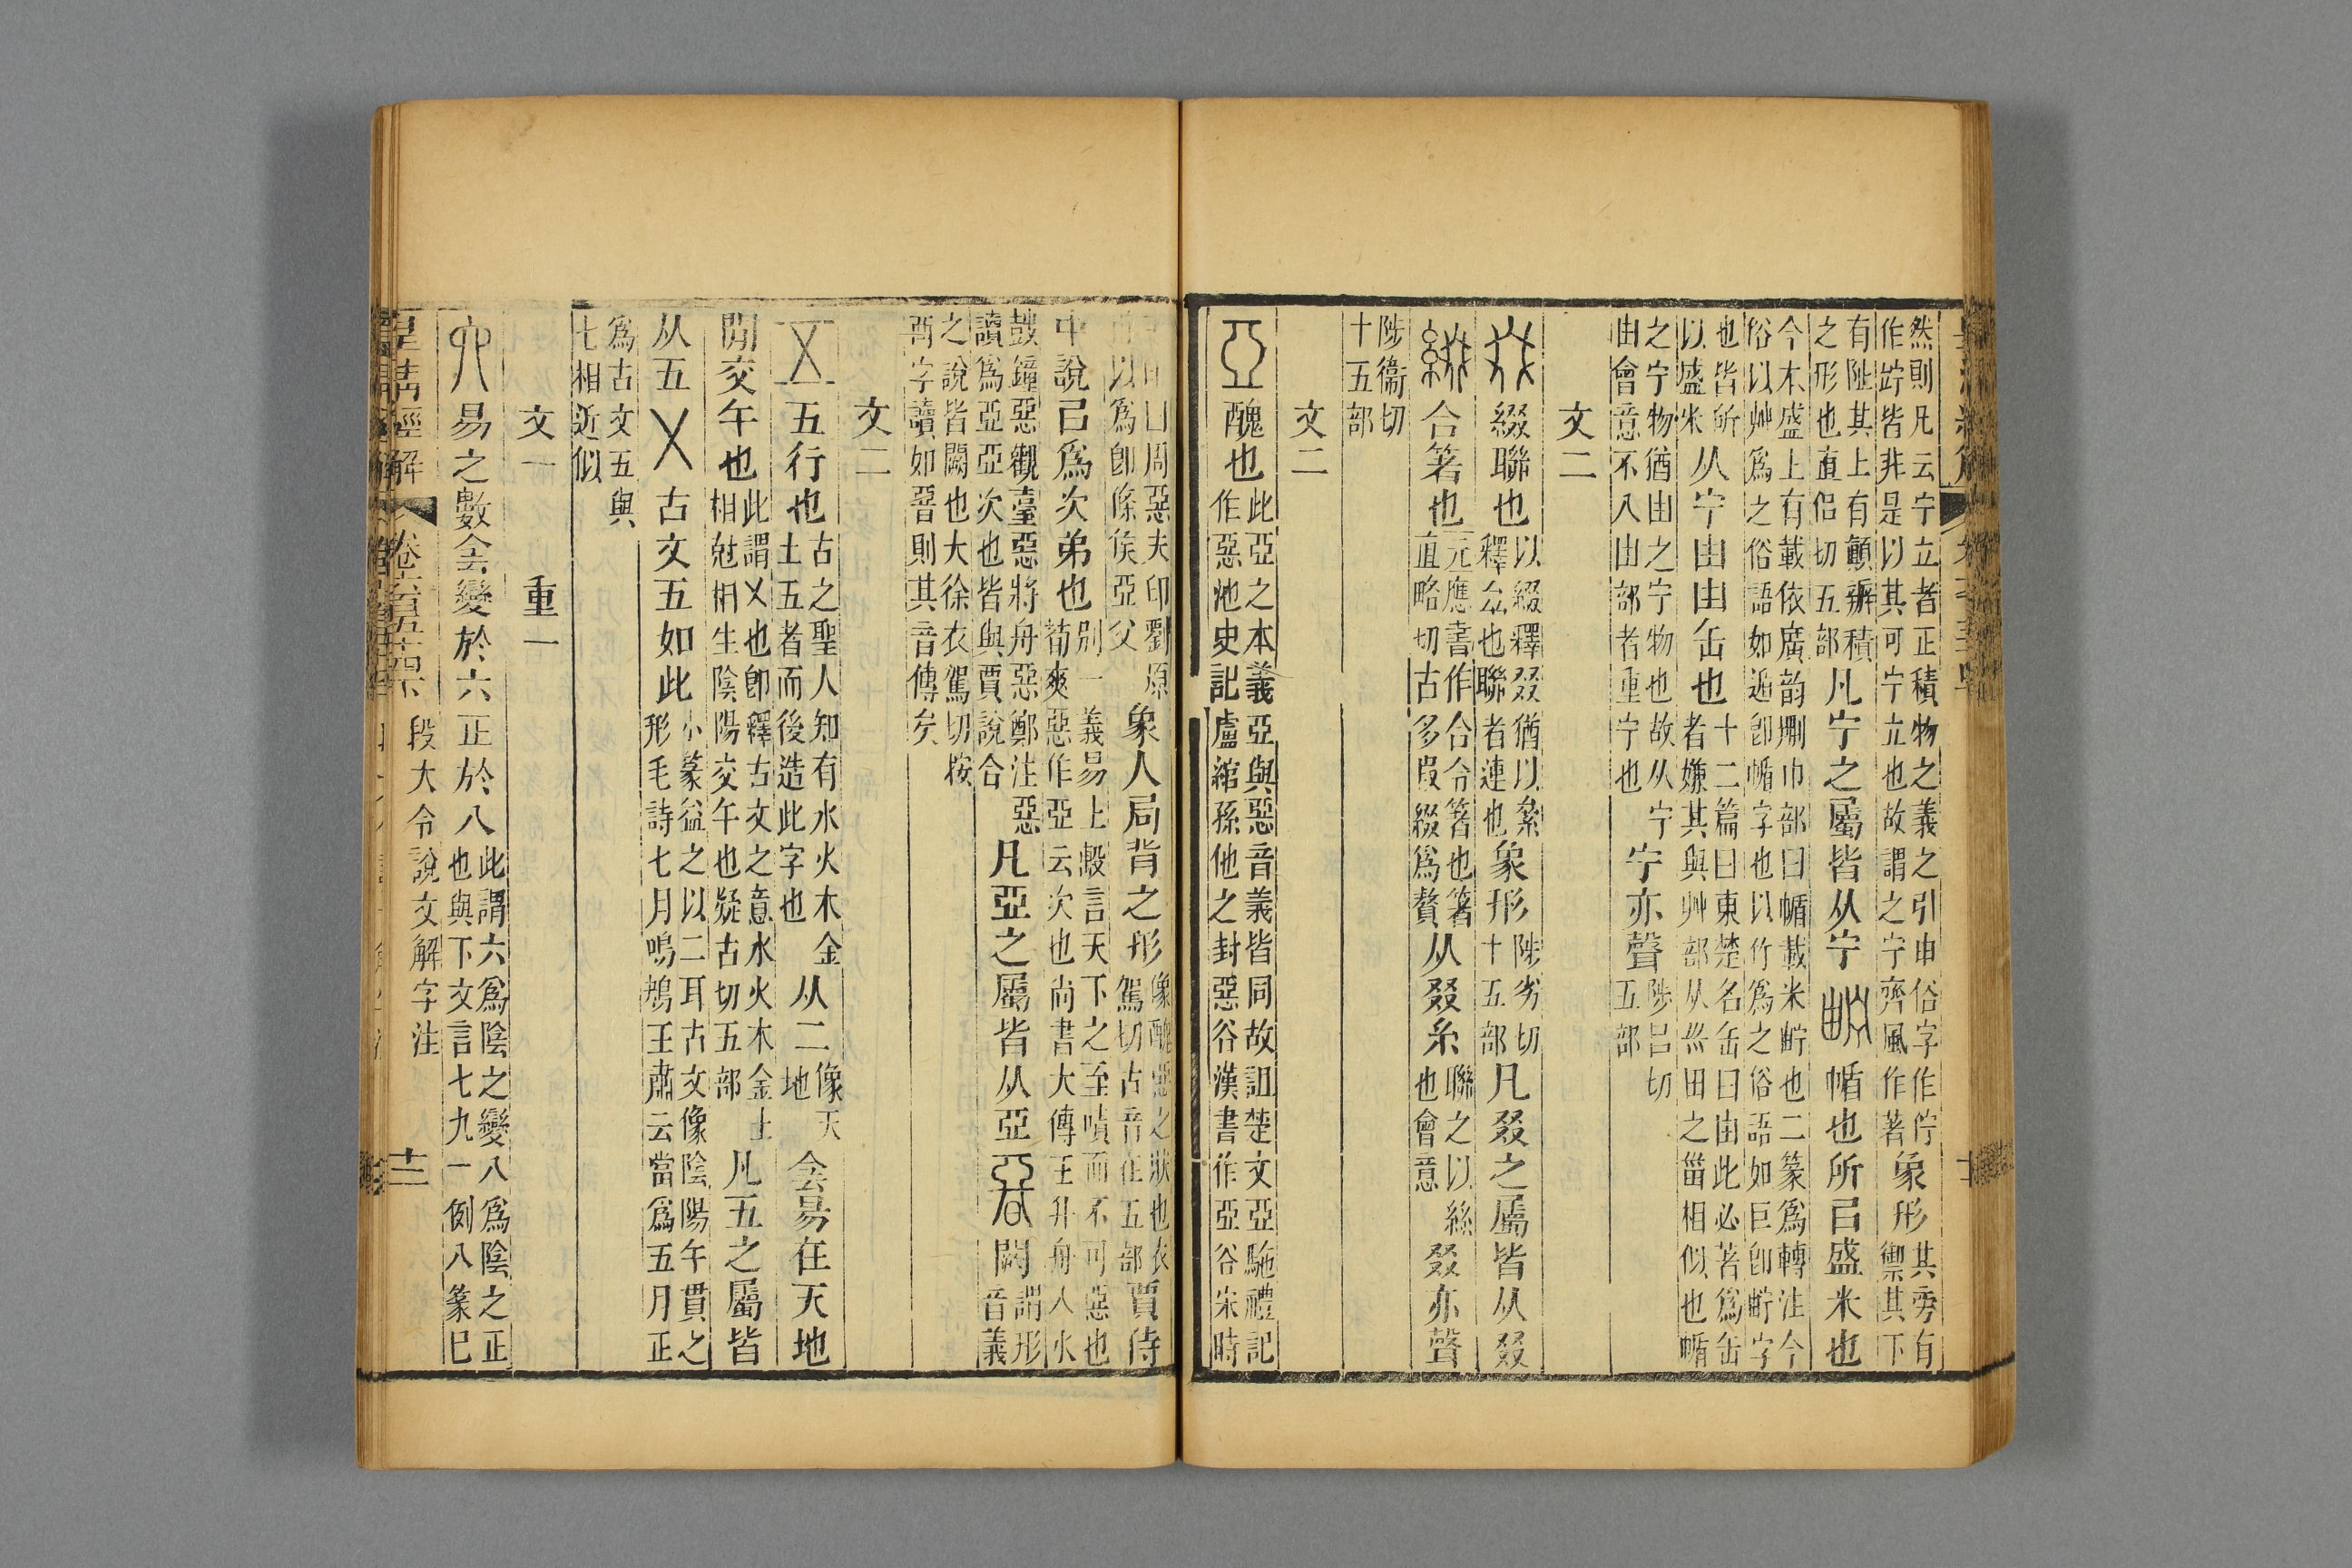 然則凡云宁立者正積物之義之引申俗字作佇
作貯皆非是以其可宁立也故謂之宁齊風作著
象形
其㫄有
禦其下
有阯其上有顱辦積
之形也直侶切五部
凡宁之屬皆从宁
㡒也所㠯盛米也
今木盛上有載依廣韵刪巾部曰㡒載米貯也二篆爲轉注今
俗以艸爲之俗語如遁卽㡒字也以竹爲之俗語如巨卽貯字
也皆所
以盛米
从宁由由缶也
十二篇曰東楚名缶曰由此必著爲缶
者嫌其與艸部从巛田之甾相似也㡒
之宁物猶由之宁物也故从宁
由會意不入由部者重宁也
宁亦聲
陟呂切
五部
文二
綴聯也
以綴釋叕猶以絫
釋厽也聯者連也
象形
陟劣切
十五部
凡叕之屬皆从叕
合箸也
元應書作合令箸也箸
直略切古多叚綴爲贅
从叕糸
聯之以絲
也會意
叕亦聲
陟衞切
十五部
文二
亞
醜也
此亞之本義亞與惡音義皆同故詛楚文亞駞禮記
作惡池史記盧綰孫他之封惡谷漢書作亞谷宋時
周惡夫印劉原
以爲卽條侯亞父
象人局背之形
像醜惡之狀也衣
駕切古音在五部
賈侍
中說㠯爲次弟也
別一義易上繫言天下之至嘖而不可惡也
荀爽惡作亞云次也尚書大傳王升舟入水
鼓鐘惡觀臺惡將舟惡鄭注惡
讀爲亞亞次也皆與賈說合
凡亞之屬皆从亞
闕
謂形
音義
之說皆闕也大徐衣駕切按
𠶷字讀如𢛶則其音傳矣
文二
五行也
古之聖人知有水火木金
土五者而後造此字也
从二
像天
地
侌昜在天地
閒交午也
此謂㐅也卽釋古文之意水火木金土
相尅相生陰陽交午也疑古切五部
凡五之屬皆
从五
㐅
古文五如此
小篆益之以二耳古文像陰陽午貫之
形毛詩七月鳴鵙王肅云當爲五月正
爲古文五與
七相近似
文一 重一
易之數侌變於六正於八
此謂六爲陰之變八爲陰之正
也與下文言七九一例八篆巳
皇清經解 卷六百五十四下 段大令說文解字注 十二